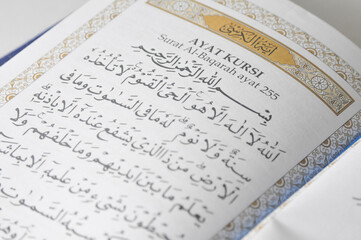 آية الكرسي
AYAT KURSI
Surat Al-Baqarah ayat 255
بِسْمِ اللهِ الرَّحْمٰنِ الرَّحِيْمِ
اَللهُ لَا اِلٰهَ اِلَّا هُوَ الْحَيُّ الْقَيُّوْمُ لَا تَأْخُذُهُ
سِنَةٌ وَّلَا نَوْمٌ لَهُ مَا فِى السَّمٰوٰتِ وَمَا فِى
الْاَرْضِ مَنْ ذَا الَّذِيْ يَشْفَعُ عِنْدَهُ اِلَّا بِاِذْنِهِ
يَعْلَمُ مَا بَيْنَ اَيْدِيْهِمْ وَمَا خَلْفَهُمْ وَلَا
يُحِيْطُوْنَ بِشَيْءٍ مِّنْ عِلْمِهِ اِلَّا بِمَا شَاءَ
السَّمٰوٰتِ